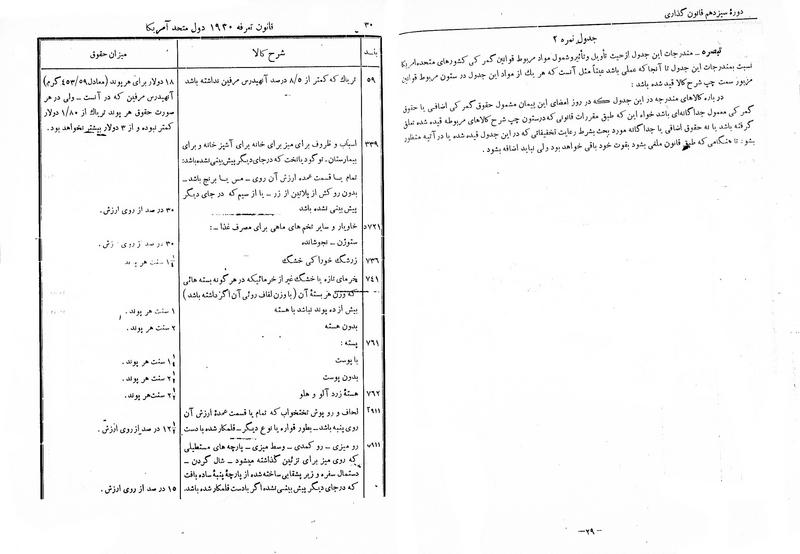 دورهٔ سیزدهم قانون گذاری
جدول نمره ۲
تبصره – مندرجات این جدول از حیث تأویل و تأثیر و شمول مواد مربوط قوانین گمرکی کشورهای متحده امریکا
نسبت بمندرجات این جدول تا آنجا که عملی باشد عیناً مثل آنست که هر یك از مواد این جدول در ستون مربوط قوانین
مزبور سمت چپ شرح کالا قید شده باشد :
در باره کالاهای مندرجه در این جدول که در روز امضای این پیمان مشمول حقوق گمرکی اضافی یا حقوق
گمرکی معمول جداگانه‌ای باشد خواه این که طبق مقررات قانونی که در ستون چپ شرح کالاهای مربوطه قیده شده تعلق
گرفته باشد یا نه حقوق اضافی یا جداگانه مورد بحث بشرط رعایت تخفیفاتی که در این جدول قیده شده یا در آتیه منظور
بشود : تا هنگامی که طبق قانون ملغی بشود بقوت خود باقی خواهد بود ولی نباید اضافه بشود .
–۲۹–
۳۰
قانون تعرفه ۱۹۳۰ دول متحد آمریکا
بند
شرح کالا
میزان حقوق
۵۹
تریاك که کمتر از ۸/۵ درصد آنهیدرس مرفین نداشته باشد
۱۸ دولار برای هر پوند (معادل ۴۵۳/۵۹ گرم)
آنهیدرس مرفین که در آنست – ولی در هر
صورت حقوق هر پوند تریاك از ۱/۸۰ دولار
کمتر نبوده و از ۳ دولار بیشتر نخواهد بود .
۳۳۹
اسباب و ظروف برای میز برای خانه برای آشپز خانه و برای
بیمارستان . توگود یا تخت که در جای دیگر پیش بینی نشده باشد :
تمام یا قسمت عمده ارزش آن روی – مس یا برنج باشد –
بدون روکش از پلاتین از زر – یا از سیم که در جای دیگر
پیش بینی نشده باشد
۳۰ در صد از روی ارزش .
۷۲۱د
خاویار و سایر تخم های ماهی برای مصرف غذا – :
ستوژن – نجوشانده
۳۰ در صد از روی ارزش .
۷۳۶
زرشگ خوراکی خشگ
سنت هر پوند
۷۴۱
خرمای تازه یا خشگ غیر از خرمائیکه در هر گونه بسته هائی
که وزن هر بستهٔ آن ( با وزن لفاف روئی آن اگر داشته باشد )
بیش از ده پوند نباشد با هسته
۱ سنت هر پوند .
بدون هسته
۲ سنت هر پوند .
۷۶۱
پسته :
با پوست
۱ ¼ سنت هر پوند .
بدون پوست
۲ ½ سنت هر پوند .
۷۶۲
هستهٔ زرد آلو و هلو
سنت هر پوند .
۹۱۱
لحاف و رو پوش تختخواب که تمام یا قسمت عمدهٔ ارزش آن
روی پنبه باشد – بطور قواره یا نوع دیگر – قلمکار شده با دست
۱۲ ½ در صد از روی ارزش .
۹۱۱ب
رو میزی – رو کمدی – وسط میزی – پارچه های مستطیلی
که روی میز برای تزئین گذاشته میشود – شال گردن –
دستمال سفره و زیر بشقابی ساخته شده از پارچهٔ پنبهٔ ساده بافت
که در جای دیگر پیش بینی نشده اگر با دست قلمکار شده باشد .
۱۵ در صد از روی ارزش .